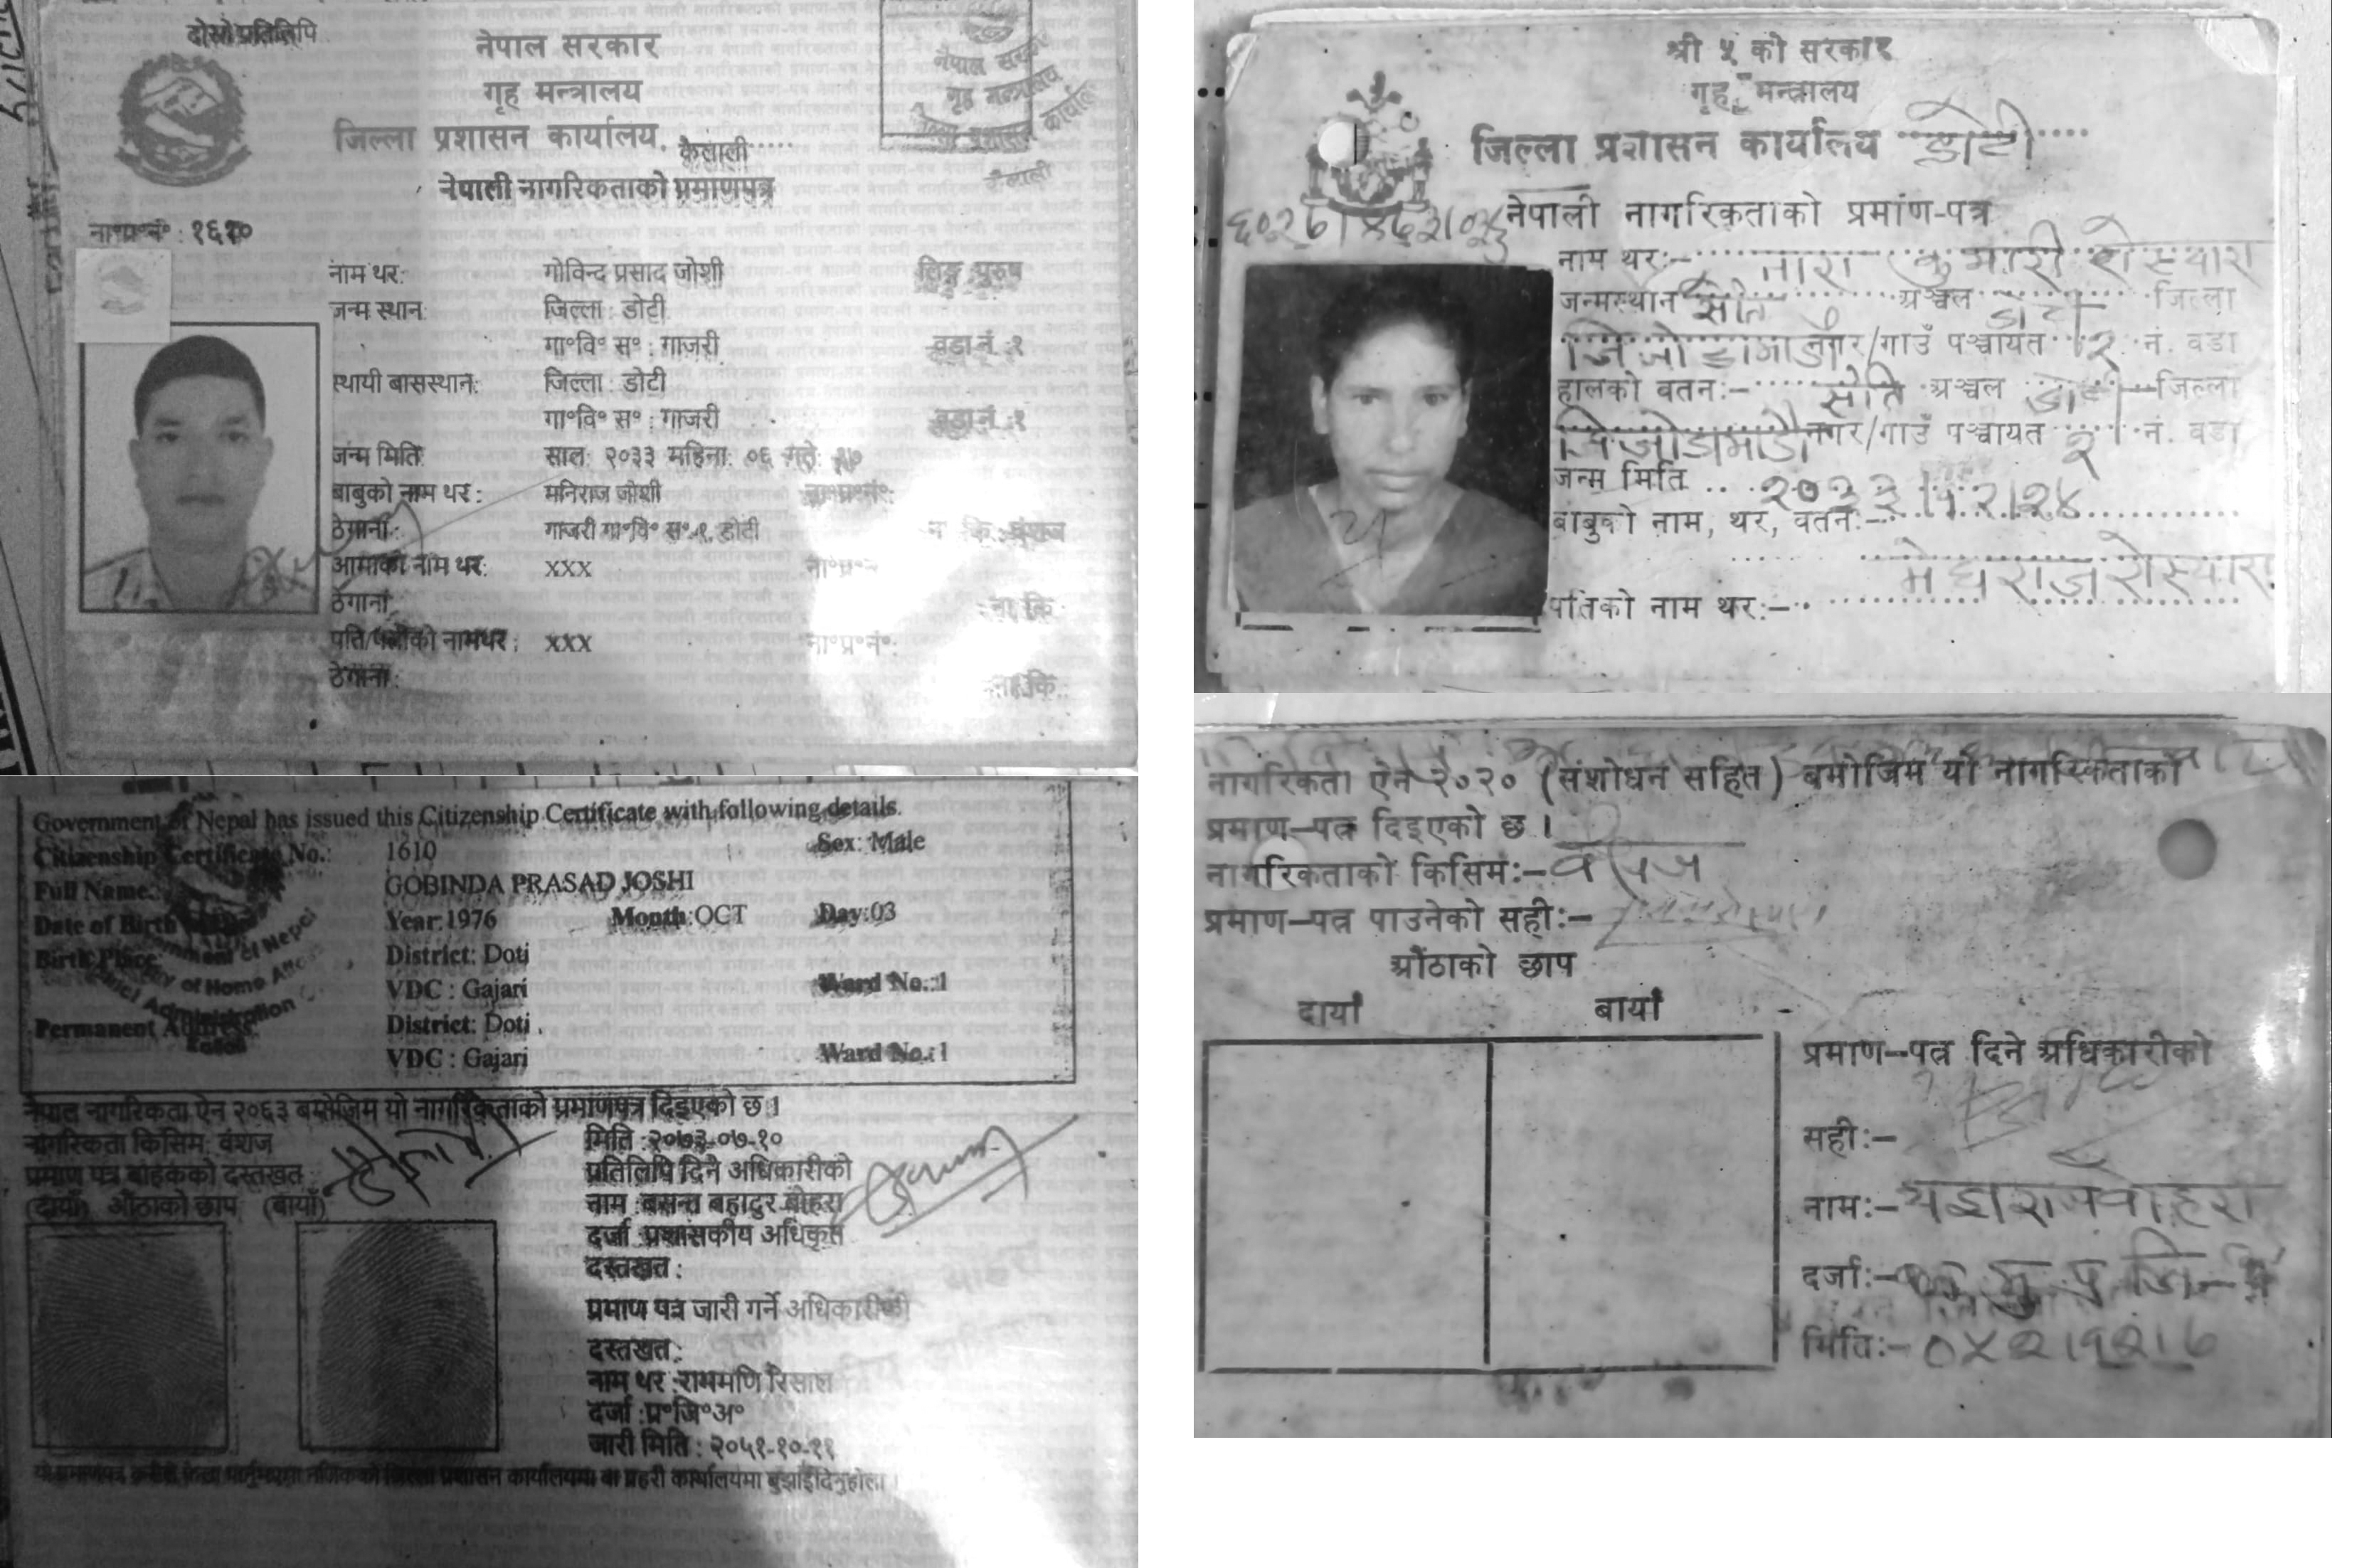 दोस्रो प्रतिलिपि
नेपाल सरकार
गृह मन्त्रालय
जिल्ला प्रशासन कार्यालय, कैलाली
नेपाली नागरिकताको प्रमाणपत्र
नेपाल सरकार
गृह मन्त्रालय
जिल्ला प्रशासन कार्यालय
कैलाली
ना॰प्र॰नं॰ : १६१०
नाम थर: गोविन्द प्रसाद जोशी लिङ्ग पुरुष
जन्म स्थान: जिल्ला : डोटी
गा॰वि॰ स॰ : गाजरी वडा नं : १
स्थायी बासस्थान: जिल्ला : डोटी
गा॰वि॰ स॰ : गाजरी वडा नं : १
जन्म मिति साल: २०३३ महिना: ०६ गते: १७
बाबुको नाम थर : मनिराज जोशी ना॰प्र॰नं॰:
ठेगाना : गाजरी गा॰वि॰ स॰-१, डोटी ना कि : वंशज
आमाको नाम थर: XXX ना॰प्र॰
ठेगाना ना कि
पति/पत्नीको नामथर : XXX ना॰प्र॰नं॰
ठेगाना : ना कि
Government of Nepal has issued this Citizenship Certificate with following details.
Citizenship Certificate No.: 1610 Sex: Male
Full Name.: GOBINDA PRASAD JOSHI
Date of Birth Year:1976 Month:OCT Day:03
Birth Place: District: Doti
VDC : Gajari Ward No.:1
Permanent Address District: Doti
VDC : Gajari Ward No.:1
नेपाल नागरिकता ऐन २०६३ बमोजिम यो नागरिकताको प्रमाणपत्र दिइएको छ ।
नागरिकता किसिम: वंशज
प्रमाण पत्र बाहकको दस्तखत :
(दायाँ) औंठाको छाप (बायाँ)
मिति : २०७३-०७-१०
प्रतिलिपि दिने अधिकारीको
नाम : बसन्त बहादुर बोहरा
दर्जा : प्रशासकीय अधिकृत
दस्तखत :
प्रमाण पत्र जारी गर्ने अधिकारीको
दस्तखत :
नाम थर : राममणि रिसाल
दर्जा : प्र॰जि॰अ॰
जारी मिति : २०५१-१०-११
जिल्ला प्रशासन कार्यालयमा वा प्रहरी कार्यालयमा बुझाईदिनुहोला ।
श्री ५ को सरकार
गृह मन्त्रालय
जिल्ला प्रशासन कार्यालय डोटी
नेपाली नागरिकताको प्रमाण-पत्र
नाम थर:- तारा कुमारी रोस्यारा
जन्मस्थान सेति अञ्चल डोटी जिल्ला
नगर/गाउँ पञ्चायत २ नं. वडा
हालको वतन:- सेति अञ्चल डोटी जिल्ला
नगर/गाउँ पञ्चायत २ नं. वडा
जन्म मिति २०३३।१२।२४
बाबुको नाम, थर, वतन:-
मेघराज रोस्यारा
पतिको नाम थर:-
नागरिकता ऐन २०२० (संशोधन सहित) बमोजिम यो नागरिकताको
प्रमाण-पत्र दिइएको छ ।
नागरिकताको किसिम:- वंशज
प्रमाण-पत्र पाउनेको सही:-
औंठाको छाप
दायाँ बायाँ
प्रमाण-पत्र दिने अधिकारीको
सही:-
नाम:- यज्ञराज बोहरा
दर्जा:-
मिति:- ०५२।१२।७